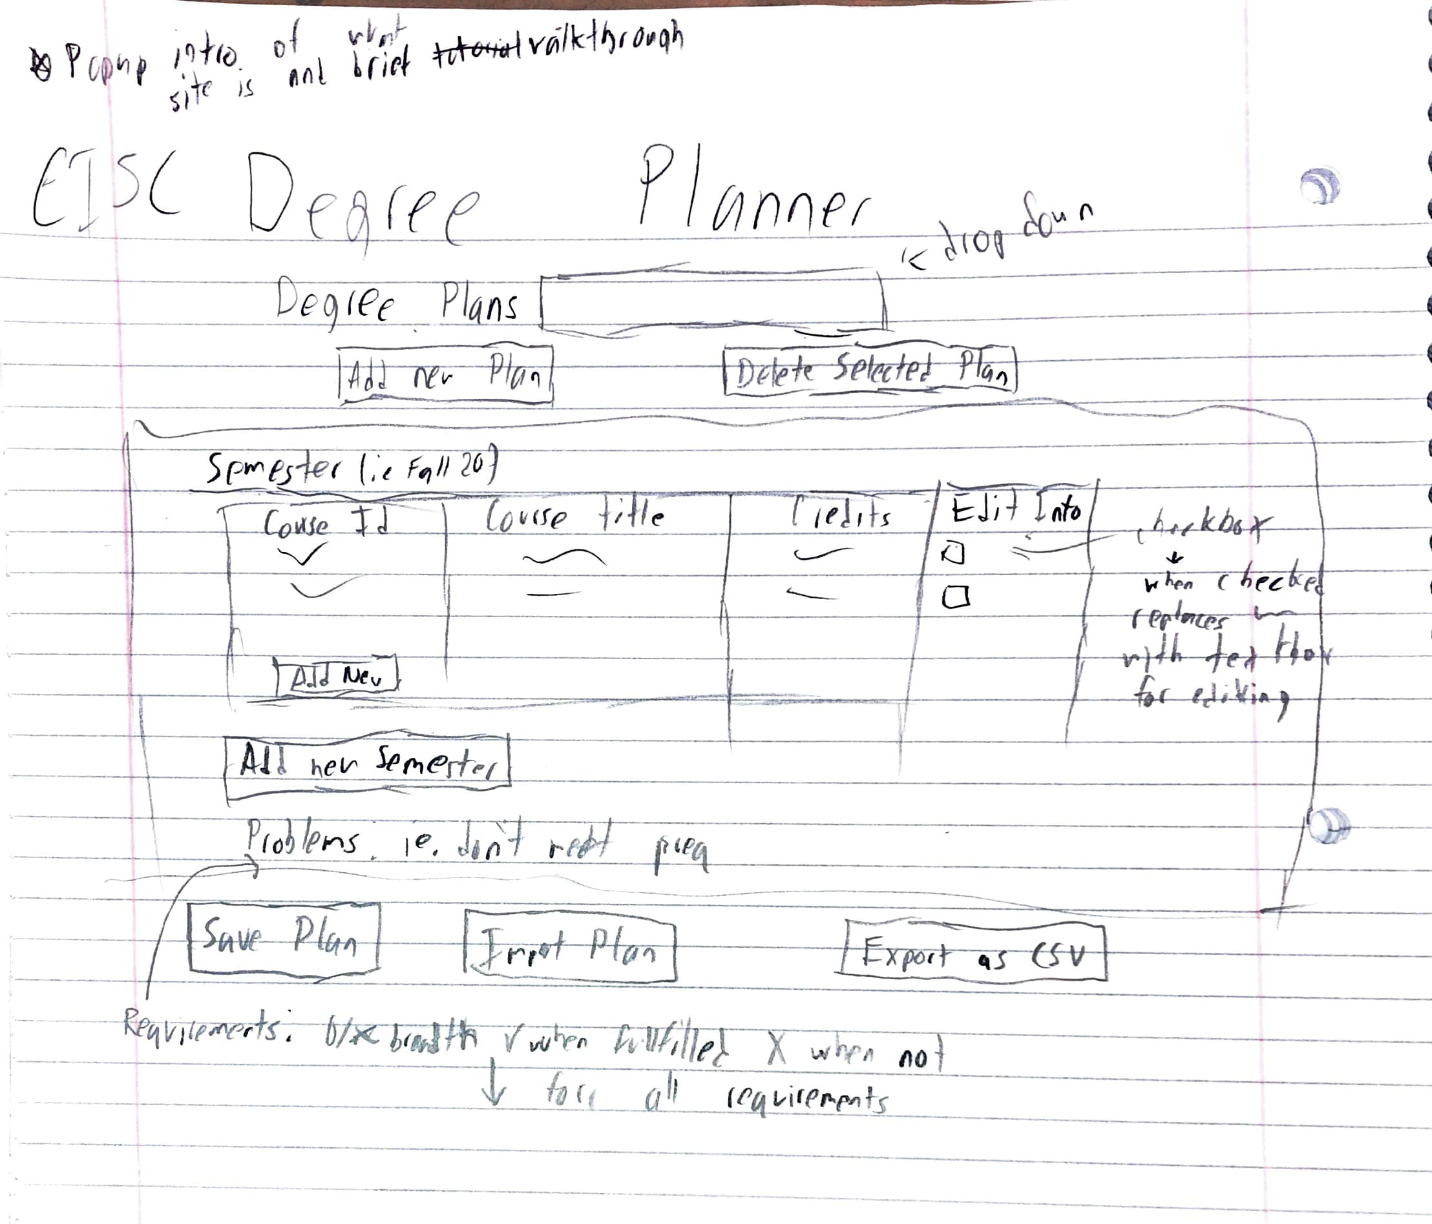 Popup intro of what
site is and brief tutorial walkthrough
EISC Degree Planner
<- drop down
Degree Plans
Add new Plan
Delete Selected Plan
Semester (ie Fall 20)
Course Id
Course title
Credits
Edit Info
checkbox
when checked
replaces
with textbox
for editing
Add New
Add new Semester
Problems. ie. don't meet preq
Save Plan
Import Plan
Export as CSV
Requirements: breadth ✓ when fullfilled X when not
all requirements